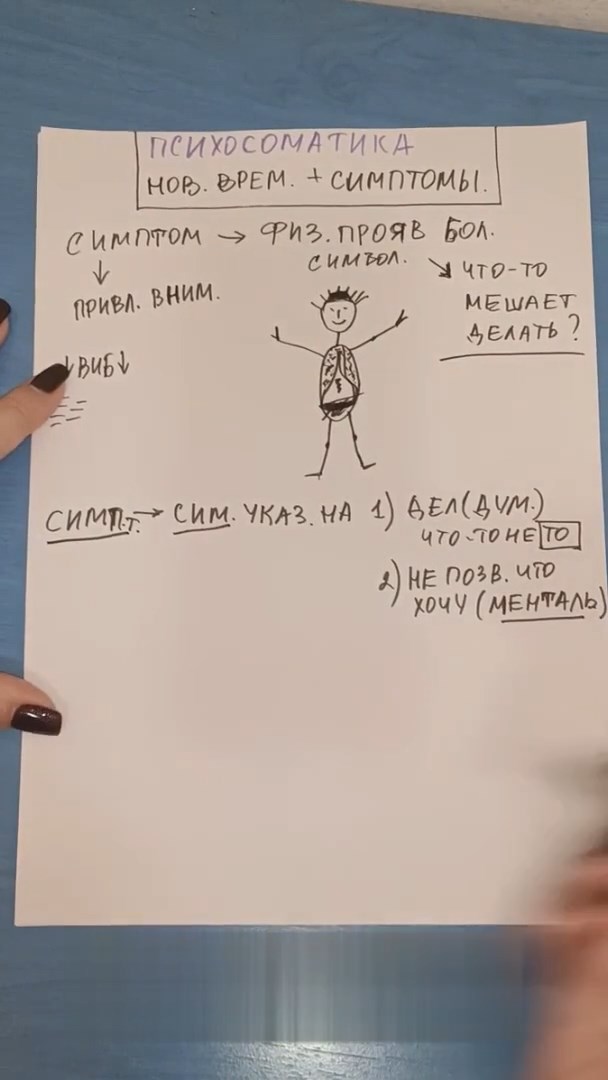 ПСИХОСОМАТИКА
НОВ. ВРЕМ. + СИМПТОМЫ.
СИМПТОМ → ФИЗ. ПРОЯВ БОЛ.
СИМВОЛ.
ПРИВЛ. ВНИМ.
ЧТО-ТО
МЕШАЕТ
ДЕЛАТЬ?
↓ВИБ↓
СИМПТ. → СИМ. УКАЗ. НА 1) ДЕЛ(ДУМ.)
ЧТО-ТО НЕ ТО
2) НЕ ПОЗВ. ЧТО
ХОЧУ (МЕНТАЛЬ)